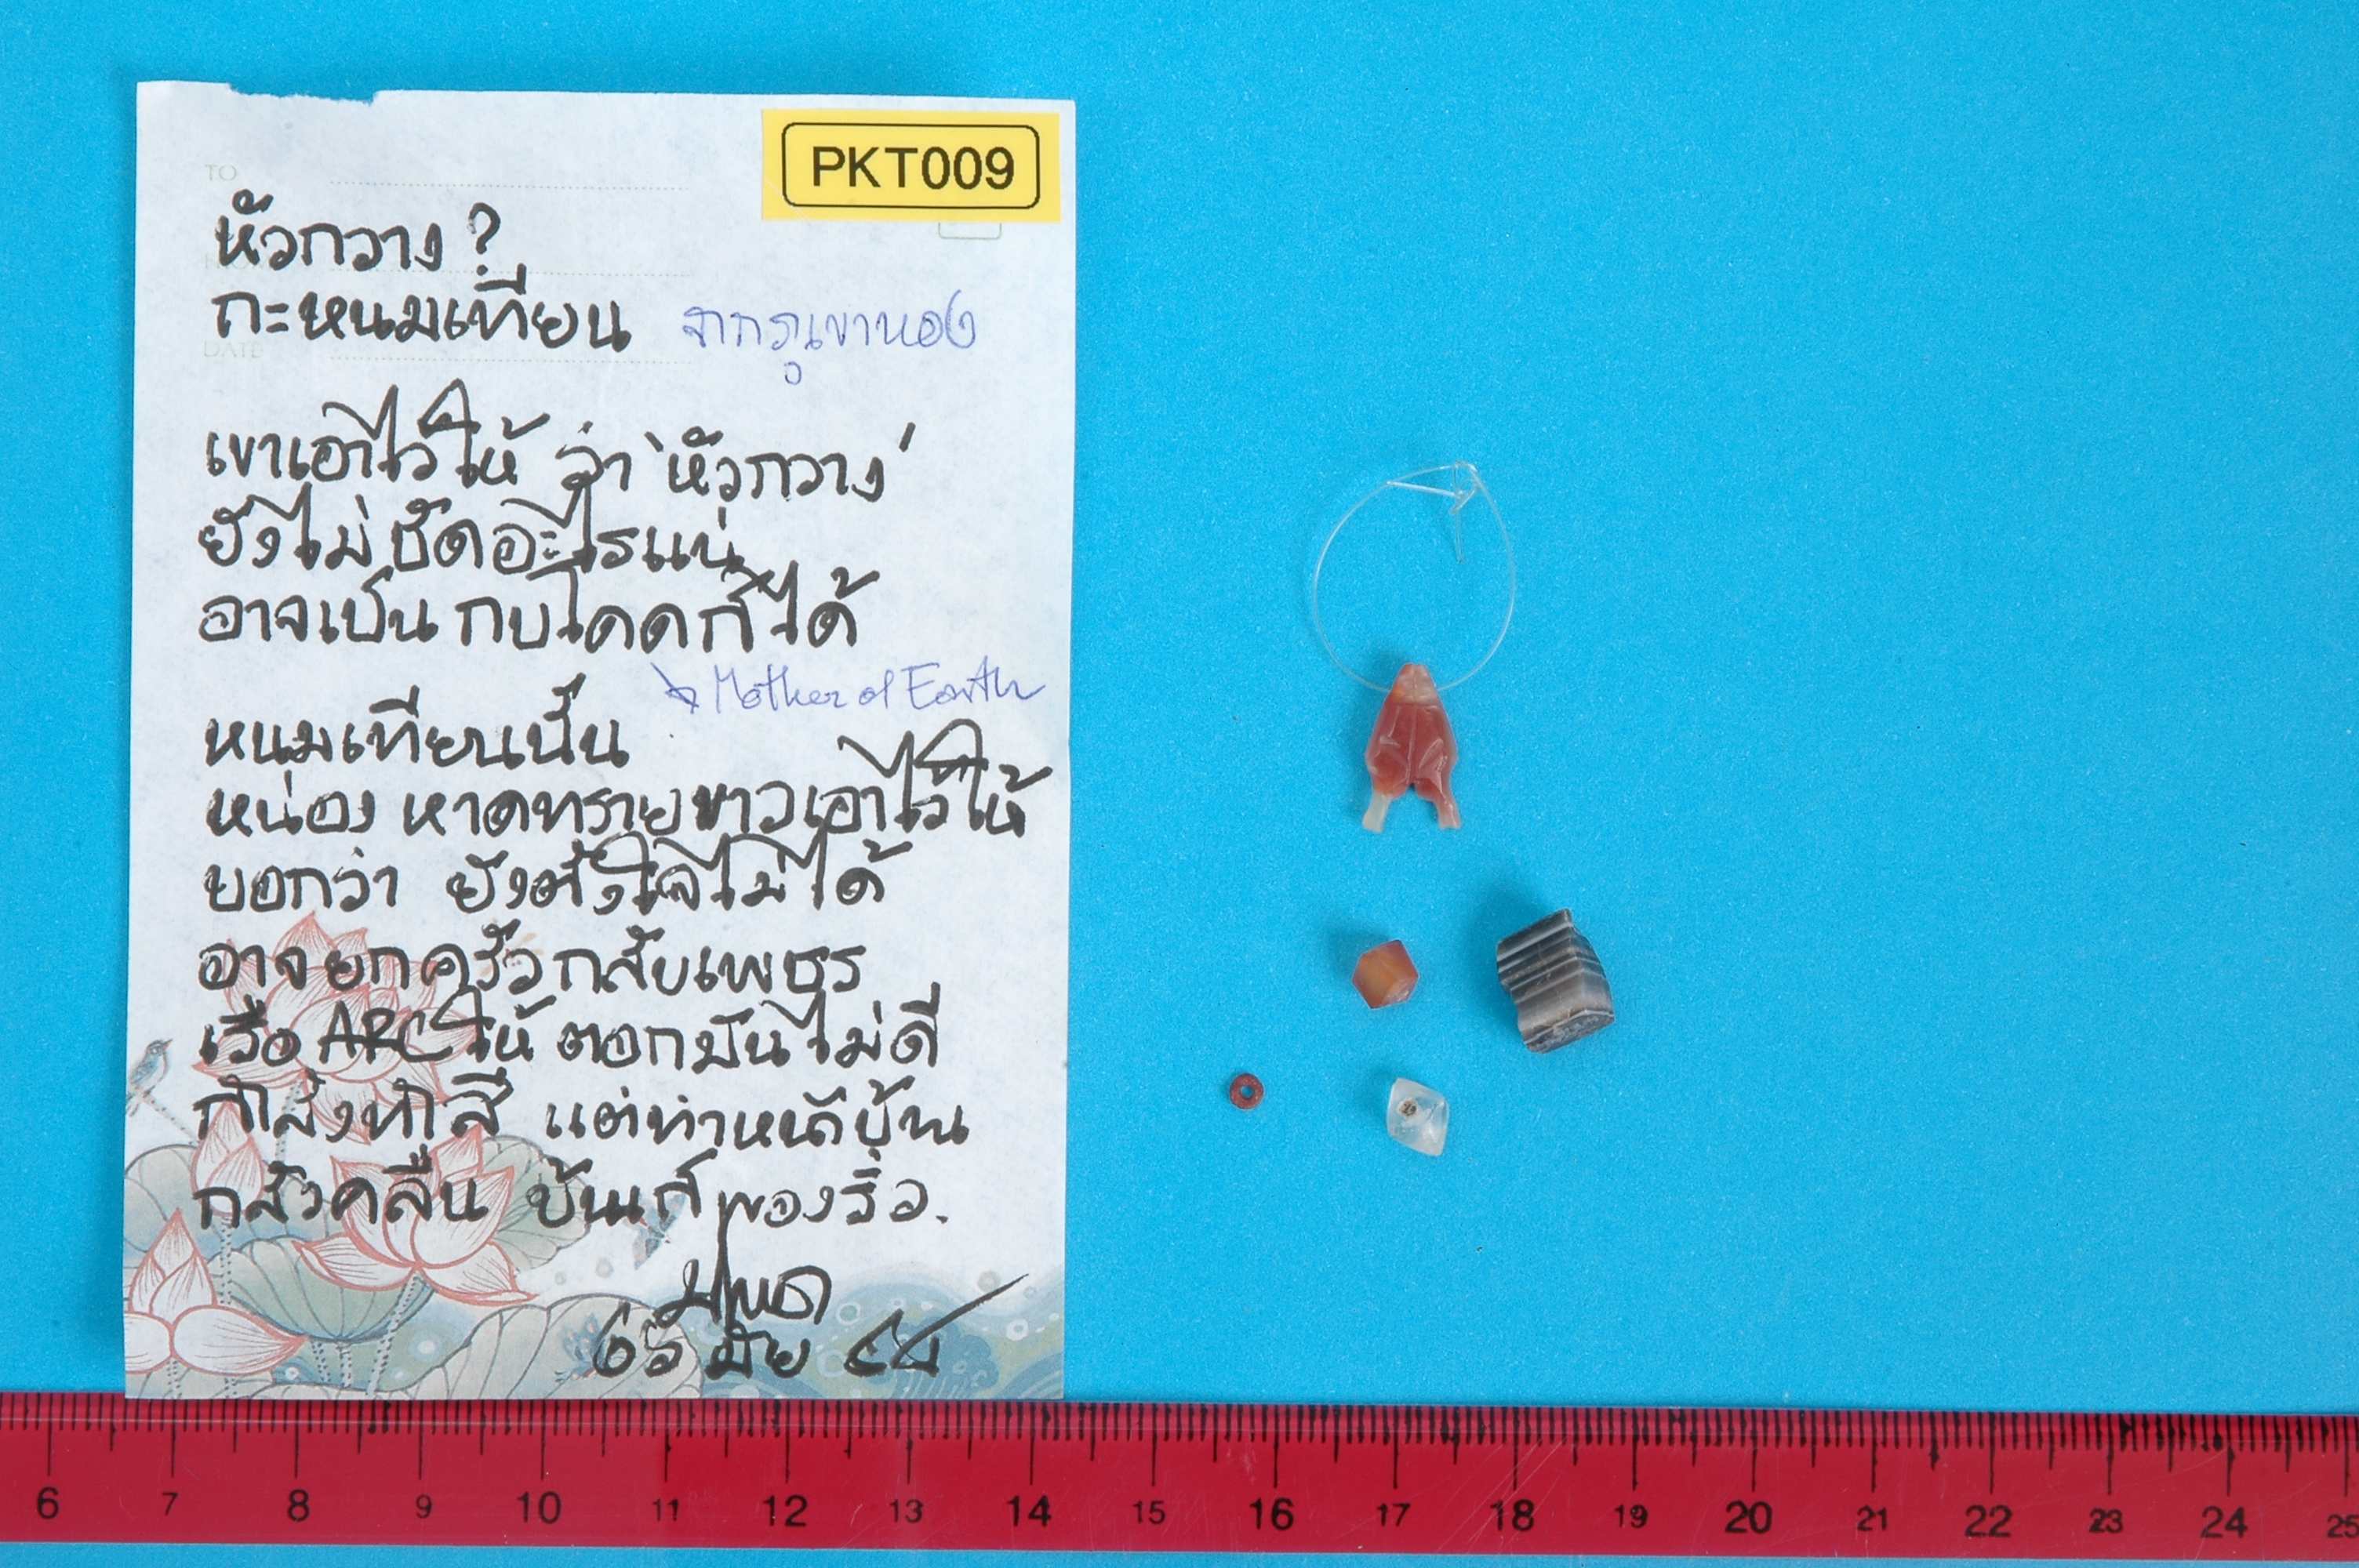 PKT009
TO
หัวกวาง ?
กะหนมเทียน จากภูเขาทอง
DATE
เขาเอาไว้ให้ ว่า 'หัวกวาง'
ยังไม่ชัดอะไรแน่
อาจเป็น กบโคดก็ได้
Mother of Earth
หนมเทียนนั้น
หน่อง หาดทรายขาวเอาไว้ให้
บอกว่า ยังตั้งใจไม่ได้
อาจยกครัวกลับเพชร
เรือ ARC ให้ ตอกมันไม่ดี
กำลังทำสี แต่ท่าหนีบ้าน
กลัวคลื่น บ้านก็ของริ้ว.
๒๖ มิย ๕๔
6 7 8 9 10 11 12 13 14 15 16 17 18 19 20 21 22 23 24 25